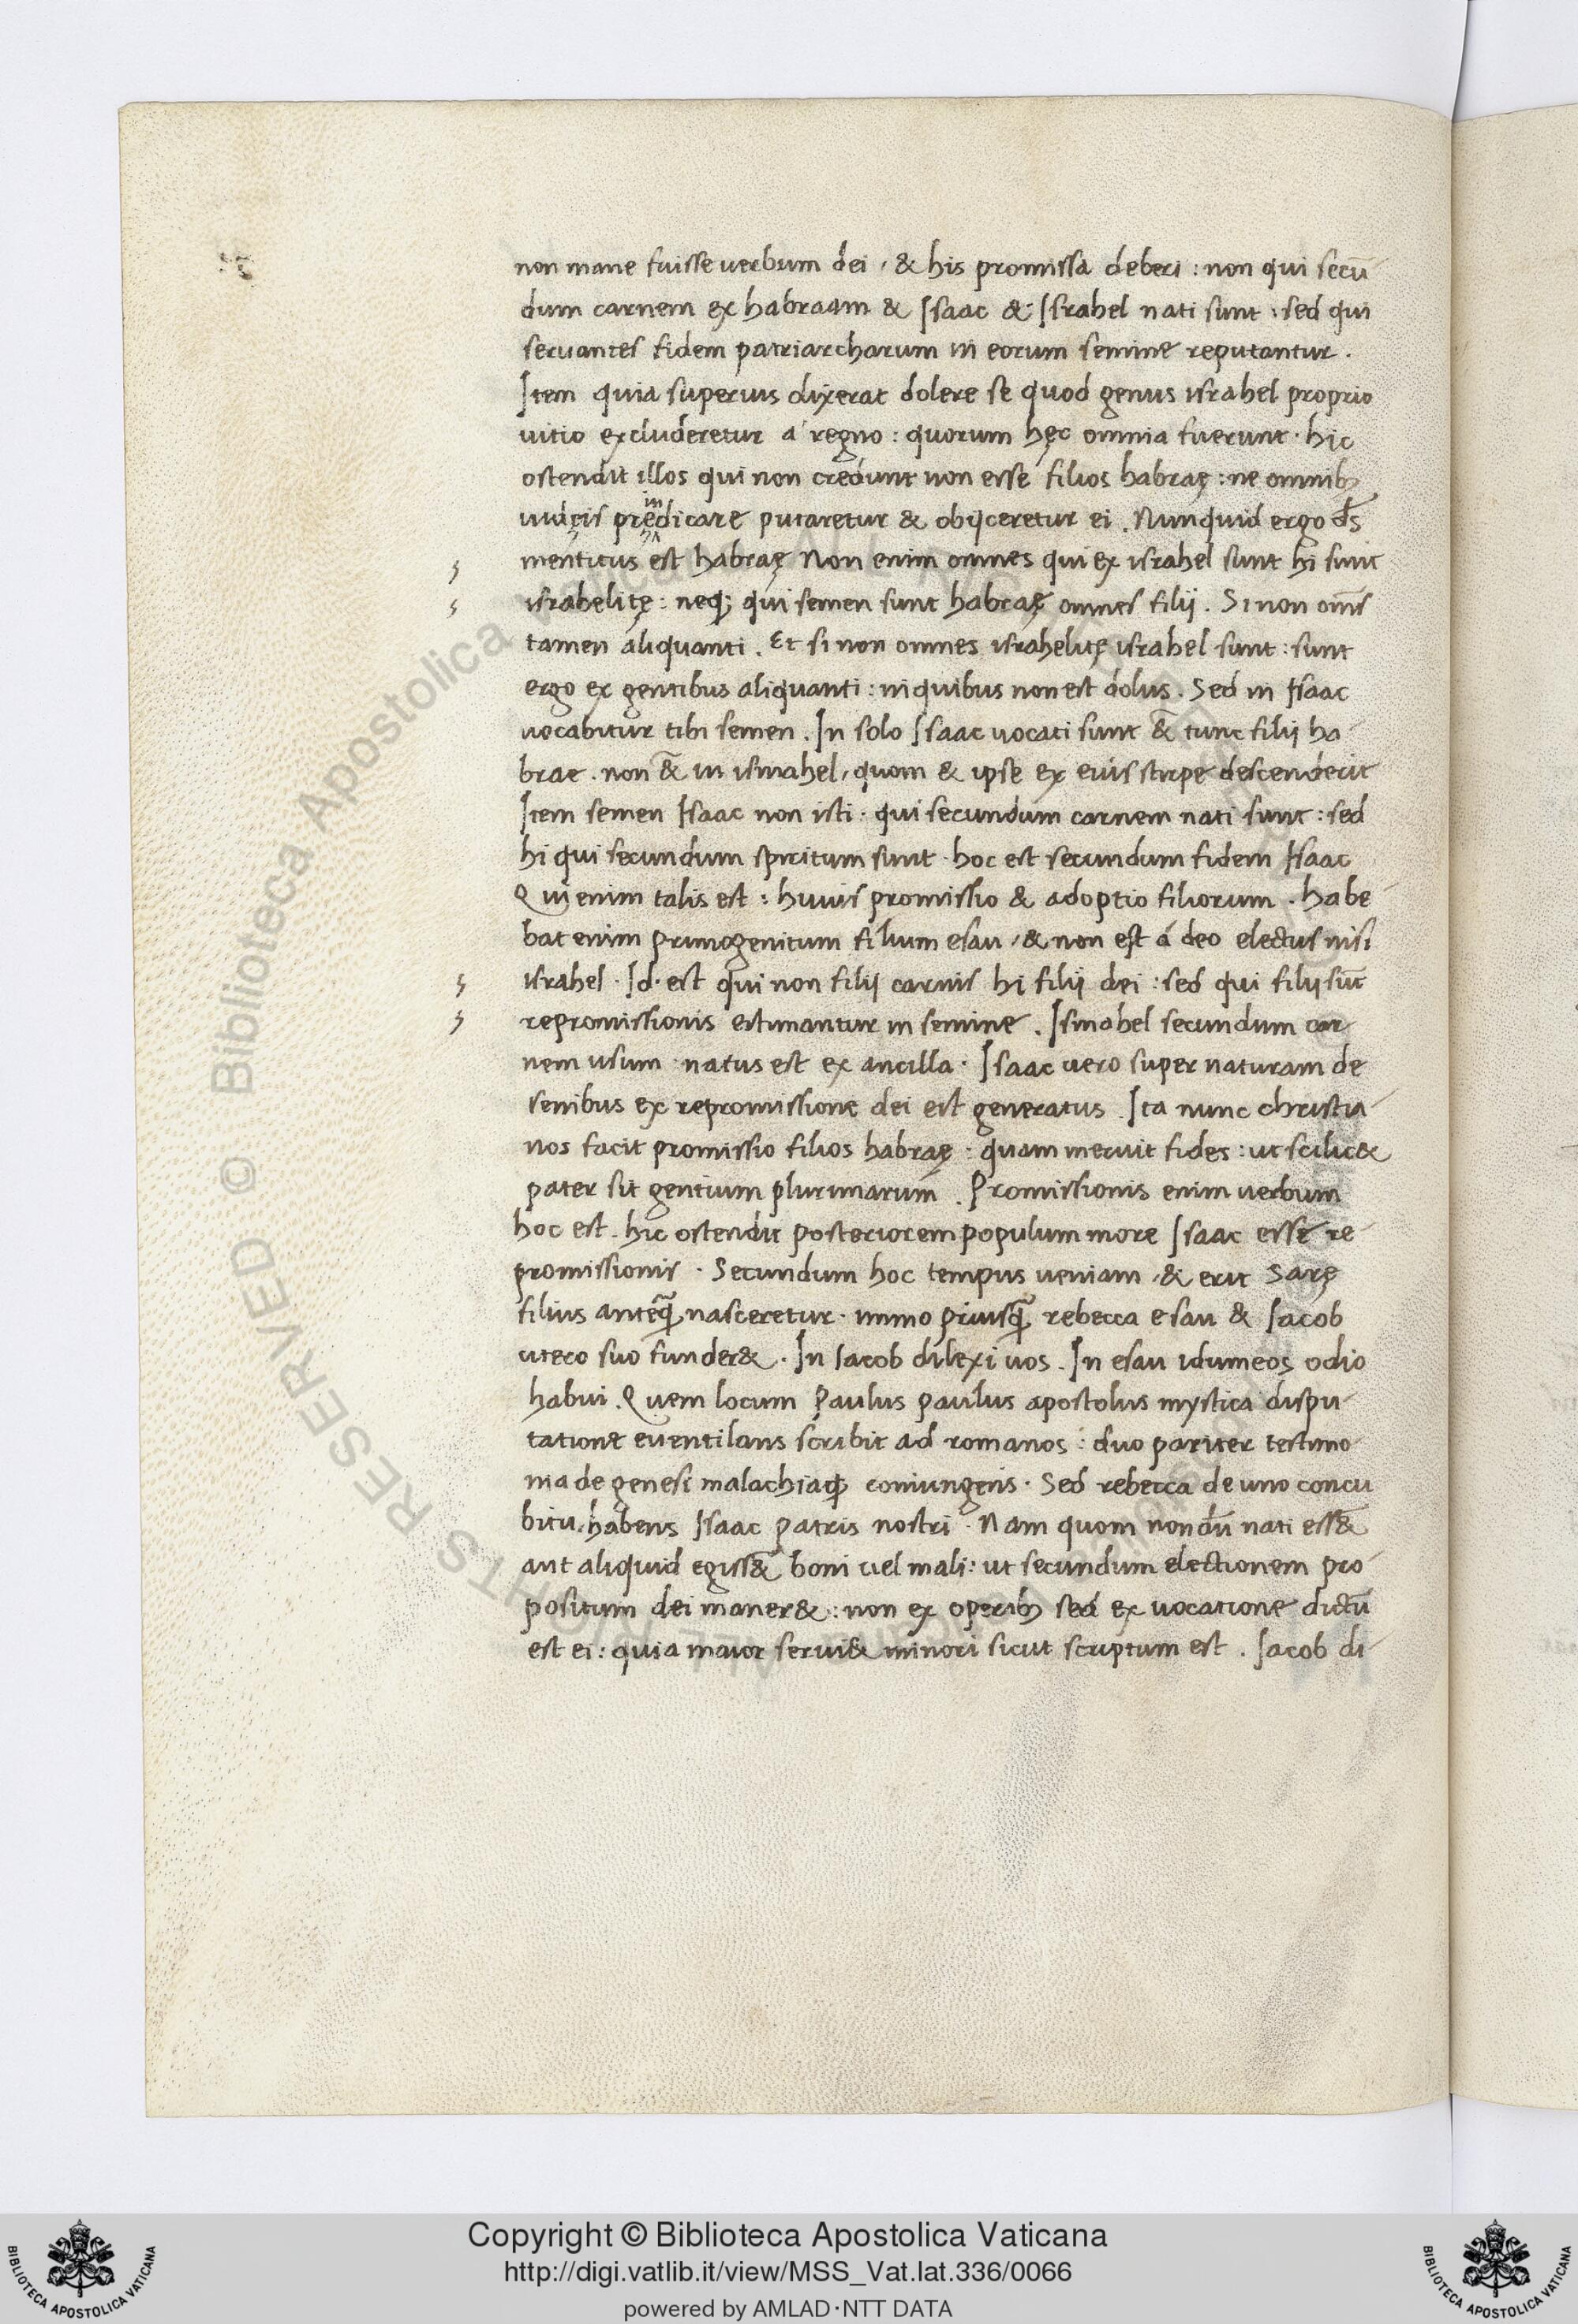 non mane fuisse uerbum dei, & his promissa deberi: non qui secū
dum carnem ex habraam & Isaac & Israhel nati sunt: sed qui
seruantes fidem patriarcharum in eorum semine reputantur.
Item quia superius dixerat dolere se quod genus israhel proprio
uitio excluderetur á regno: quorum hęc omnia fuerunt. hic
ostendit illos qui non credunt non esse filios habraę: ne omnibꝫ
iudęis pręindicare putaretur & obijceretur ei. Nunquid ergo ds̄
mentitus est habraę Non enim omnes qui ex israhel sunt hi sunt
israhelitę: neqꝫ qui semen sunt habraę omnes filij. Si non om̄s
tamen aliquanti. Et si non omnes israhelitę israhel sunt: sunt
ergo ex gentibus aliquanti: in quibus non est dolus. Sed in Isaac
uocabitur tibi semen. In solo Isaac uocati sunt &̄ tunc filij ha-
brae. non &̄ in ismahel, quom & ipse ex eius stirpe descenderit
Item semen Isaac non isti. qui secundum carnem nati sunt: sed
hi qui secundum spiritum sunt. hoc est secundum fidem Isaac
Qui enim talis est: huius promissio & adoptio filiorum. habe-
bat enim primogenitum filium esau, & non est á deo electus nisi
israhel. Id. est qui non filij carnis hi filij dei: sed qui filij sūt
repromissionis estimantur in semine. Ismahel secundum car-
nem usum natus est ex ancilla. Isaac uero super naturam de
senibus ex repromissione dei est generatus. Ita nunc christia-
nos facit promissio filios habraę: quam meruit fides: ut scilic&
pater sit gentium plurimarum. Promissionis enim uerbum
hoc est. hic ostendit posteriorem populum more Isaac esse re-
promissionis. Secundum hoc tempus ueniam, & erit Sarę
filius anteꝗ̄ nasceretur. immo priusꝗ̄ rebecca esau & Iacob
utero suo funder&. In Iacob dilexi uos. In esau idumeos odio
habui. Quem locum Paulus paulus apostolus mystica dispu-
tatione euentilans scribit ad romanos: duo pariter testimo-
nia de genesi malachiaqꝫ coniungens. Sed rebecca de uno concu
bitu, habens Isaac patris nostri. Nam quom nondū nati ess&̄
aut aliquid egiss&̄ boni uel mali: ut secundum electionem pro-
positum dei maner&: non ex operibꝫ sed ex uocatione dictū
est ei: quia maior serui& minori sicut scriptum est. Iacob di-
© Biblioteca Apostolica Vaticana
ALL RIGHTS RESERVED
Copyright © Biblioteca Apostolica Vaticana
http://digi.vatlib.it/view/MSS_Vat.lat.336/0066
powered by AMLAD·NTT DATA
BIBLIOTECA APOSTOLICA VATICANA
BIBLIOTECA APOSTOLICA VATICANA